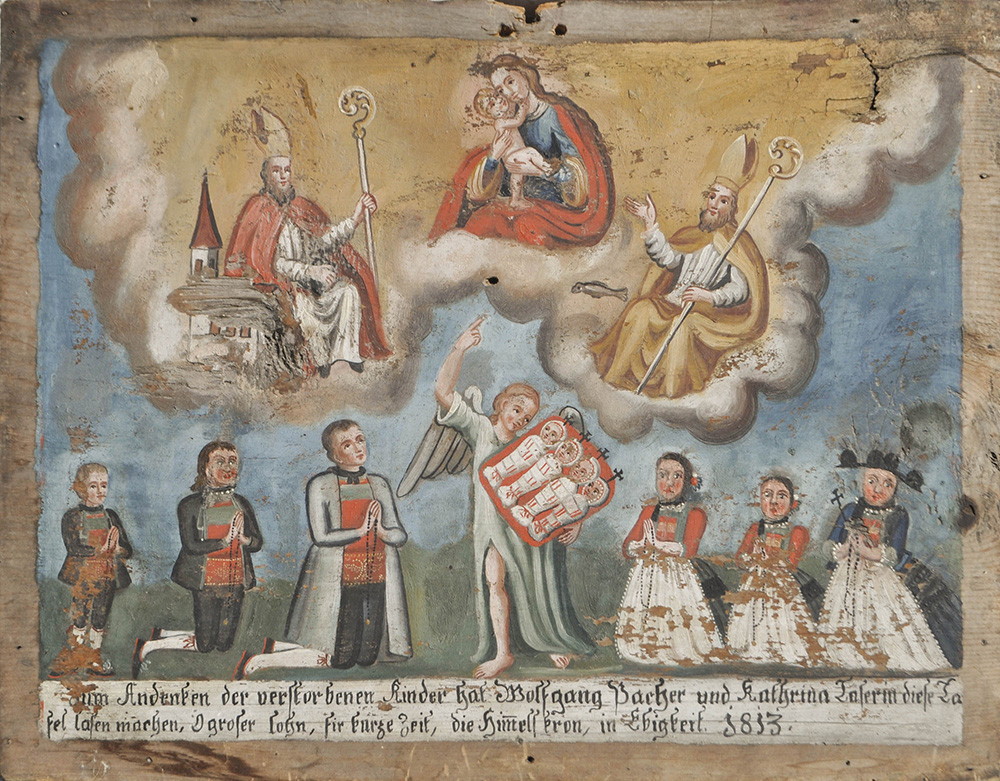 Zum Andenken der verstorbenen Kinder hat Wolfgang Pacher und Kathrina Taserin diese Ta
fel lasen machen, O groser lohn, fir kurze Zeit, die Him̄els kron, in Ebigkeit. 1813.